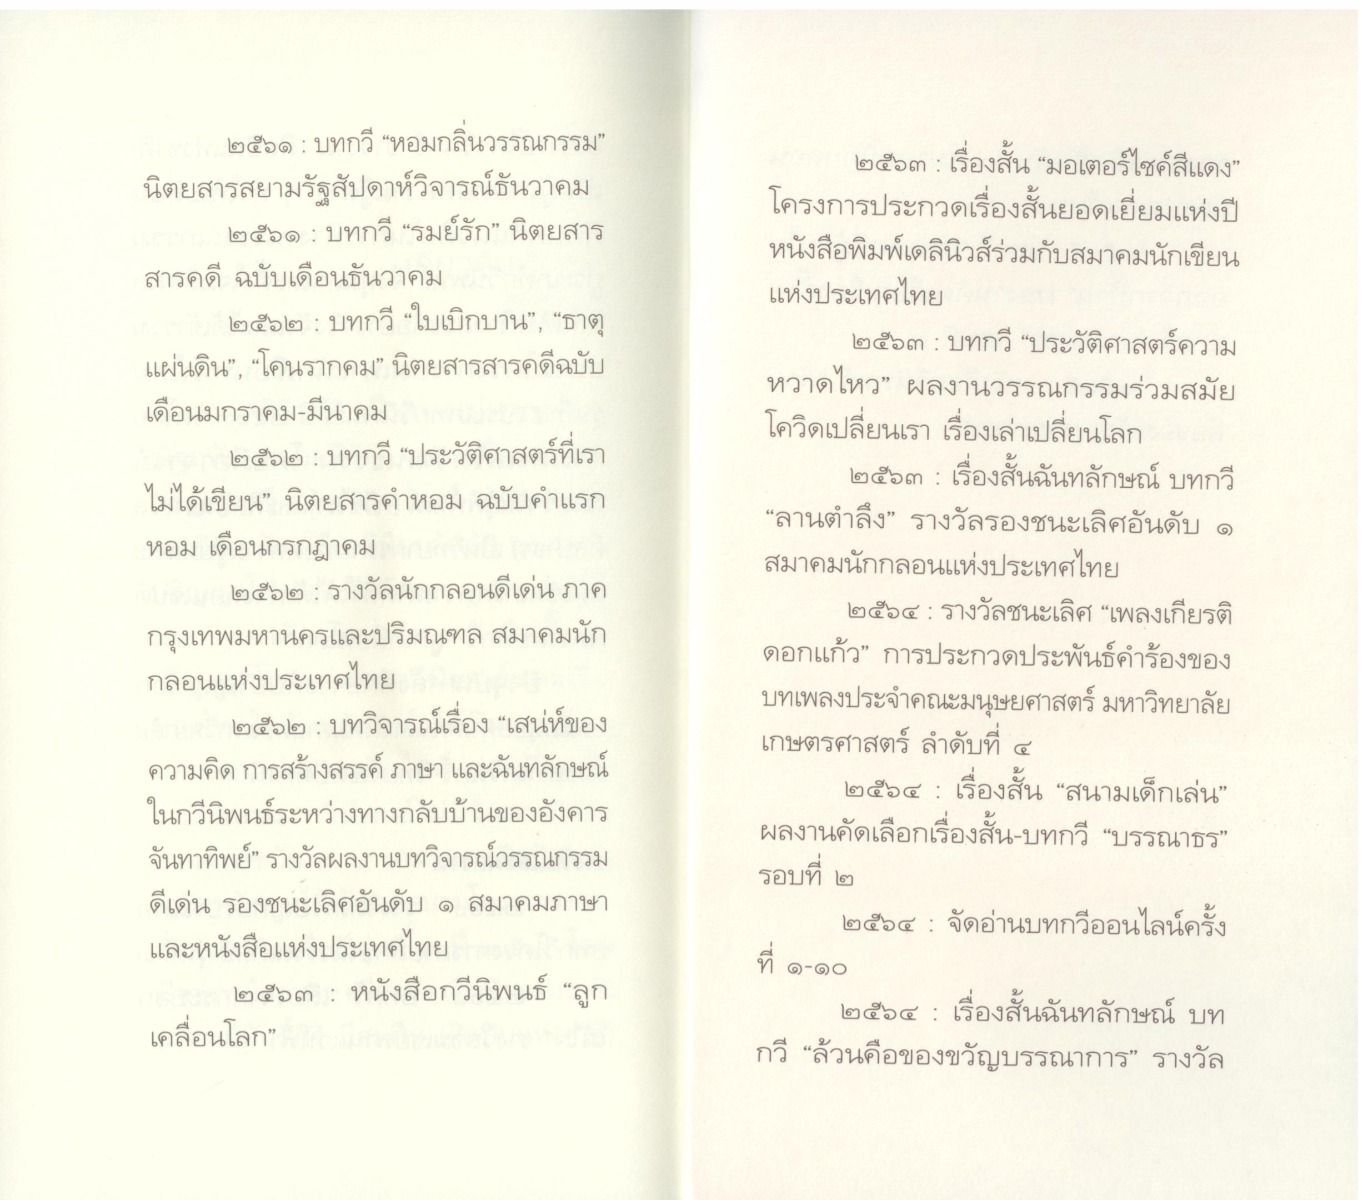 ๒๕๖๑ : บทกวี “หอมกลิ่นวรรณกรรม”
นิตยสารสยามรัฐสัปดาห์วิจารณ์ธันวาคม
๒๕๖๑ : บทกวี “รมย์รัก” นิตยสาร
สารคดี ฉบับเดือนธันวาคม
๒๕๖๒ : บทกวี “ใบเบิกบาน”, “ธาตุ
แผ่นดิน”, “โคนรากคม” นิตยสารสารคดีฉบับ
เดือนมกราคม-มีนาคม
๒๕๖๒ : บทกวี “ประวัติศาสตร์ที่เรา
ไม่ได้เขียน” นิตยสารคำหอม ฉบับคำแรก
หอม เดือนกรกฎาคม
๒๕๖๒ : รางวัลนักกลอนดีเด่น ภาค
กรุงเทพมหานครและปริมณฑล สมาคมนัก
กลอนแห่งประเทศไทย
๒๕๖๒ : บทวิจารณ์เรื่อง “เสน่ห์ของ
ความคิด การสร้างสรรค์ ภาษา และฉันทลักษณ์
ในกวีนิพนธ์ระหว่างทางกลับบ้านของอังคาร
จันทาทิพย์” รางวัลผลงานบทวิจารณ์วรรณกรรม
ดีเด่น รองชนะเลิศอันดับ ๑ สมาคมภาษา
และหนังสือแห่งประเทศไทย
๒๕๖๓ : หนังสือกวีนิพนธ์ “ลูก
เคลื่อนโลก”
๒๕๖๓ : เรื่องสั้น “มอเตอร์ไซค์สีแดง”
โครงการประกวดเรื่องสั้นยอดเยี่ยมแห่งปี
หนังสือพิมพ์เดลินิวส์ร่วมกับสมาคมนักเขียน
แห่งประเทศไทย
๒๕๖๓ : บทกวี “ประวัติศาสตร์ความ
หวาดไหว” ผลงานวรรณกรรมร่วมสมัย
โควิดเปลี่ยนเรา เรื่องเล่าเปลี่ยนโลก
๒๕๖๓ : เรื่องสั้นฉันทลักษณ์ บทกวี
“ลานตำลึง” รางวัลรองชนะเลิศอันดับ ๑
สมาคมนักกลอนแห่งประเทศไทย
๒๕๖๔ : รางวัลชนะเลิศ “เพลงเกียรติ
ดอกแก้ว” การประกวดประพันธ์คำร้องของ
บทเพลงประจำคณะมนุษยศาสตร์ มหาวิทยาลัย
เกษตรศาสตร์ ลำดับที่ ๔
๒๕๖๔ : เรื่องสั้น “สนามเด็กเล่น”
ผลงานคัดเลือกเรื่องสั้น-บทกวี “บรรณาธร”
รอบที่ ๒
๒๕๖๔ : จัดอ่านบทกวีออนไลน์ครั้ง
ที่ ๑-๑๐
๒๕๖๔ : เรื่องสั้นฉันทลักษณ์ บท
กวี “ล้วนคือของขวัญบรรณาการ” รางวัล